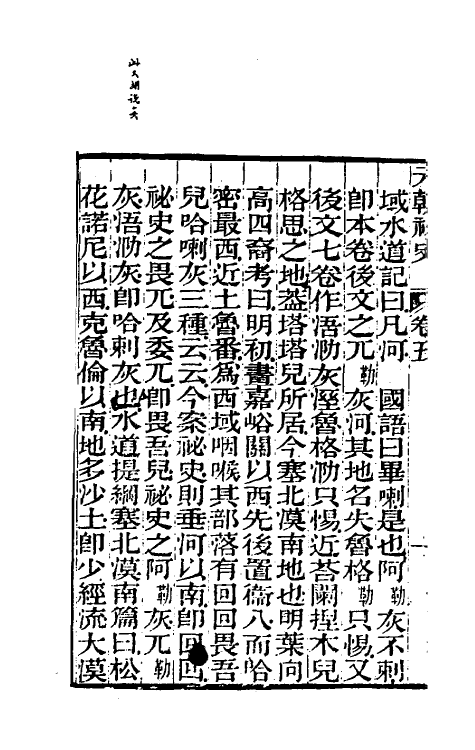 此又胡說矣
元朝祕史 卷五
域水道記曰凡河 國語曰畢喇是也阿勒灰不剌
卽本卷後文之兀勒灰河其地名失魯格勒只惕又
後文七卷作浯泐灰溼魯格泐只惕近荅闌捏木兒
格思之地葢塔塔兒所居今塞北漠南地也明葉向
高四裔考曰明初畫嘉峪關以西先後置衞八而哈
密最西近土魯番爲西域咽喉其部落有回回畏吾
兒哈喇灰三種云云今案祕史則垂河以南卽回回
祕史之畏兀及委兀卽畏吾兒祕史之阿勒灰兀勒
灰浯泐灰卽哈剌灰也水道提綱塞北漠南篇曰松
花諾尼以西克魯倫以南地多沙土卽少經流大漠